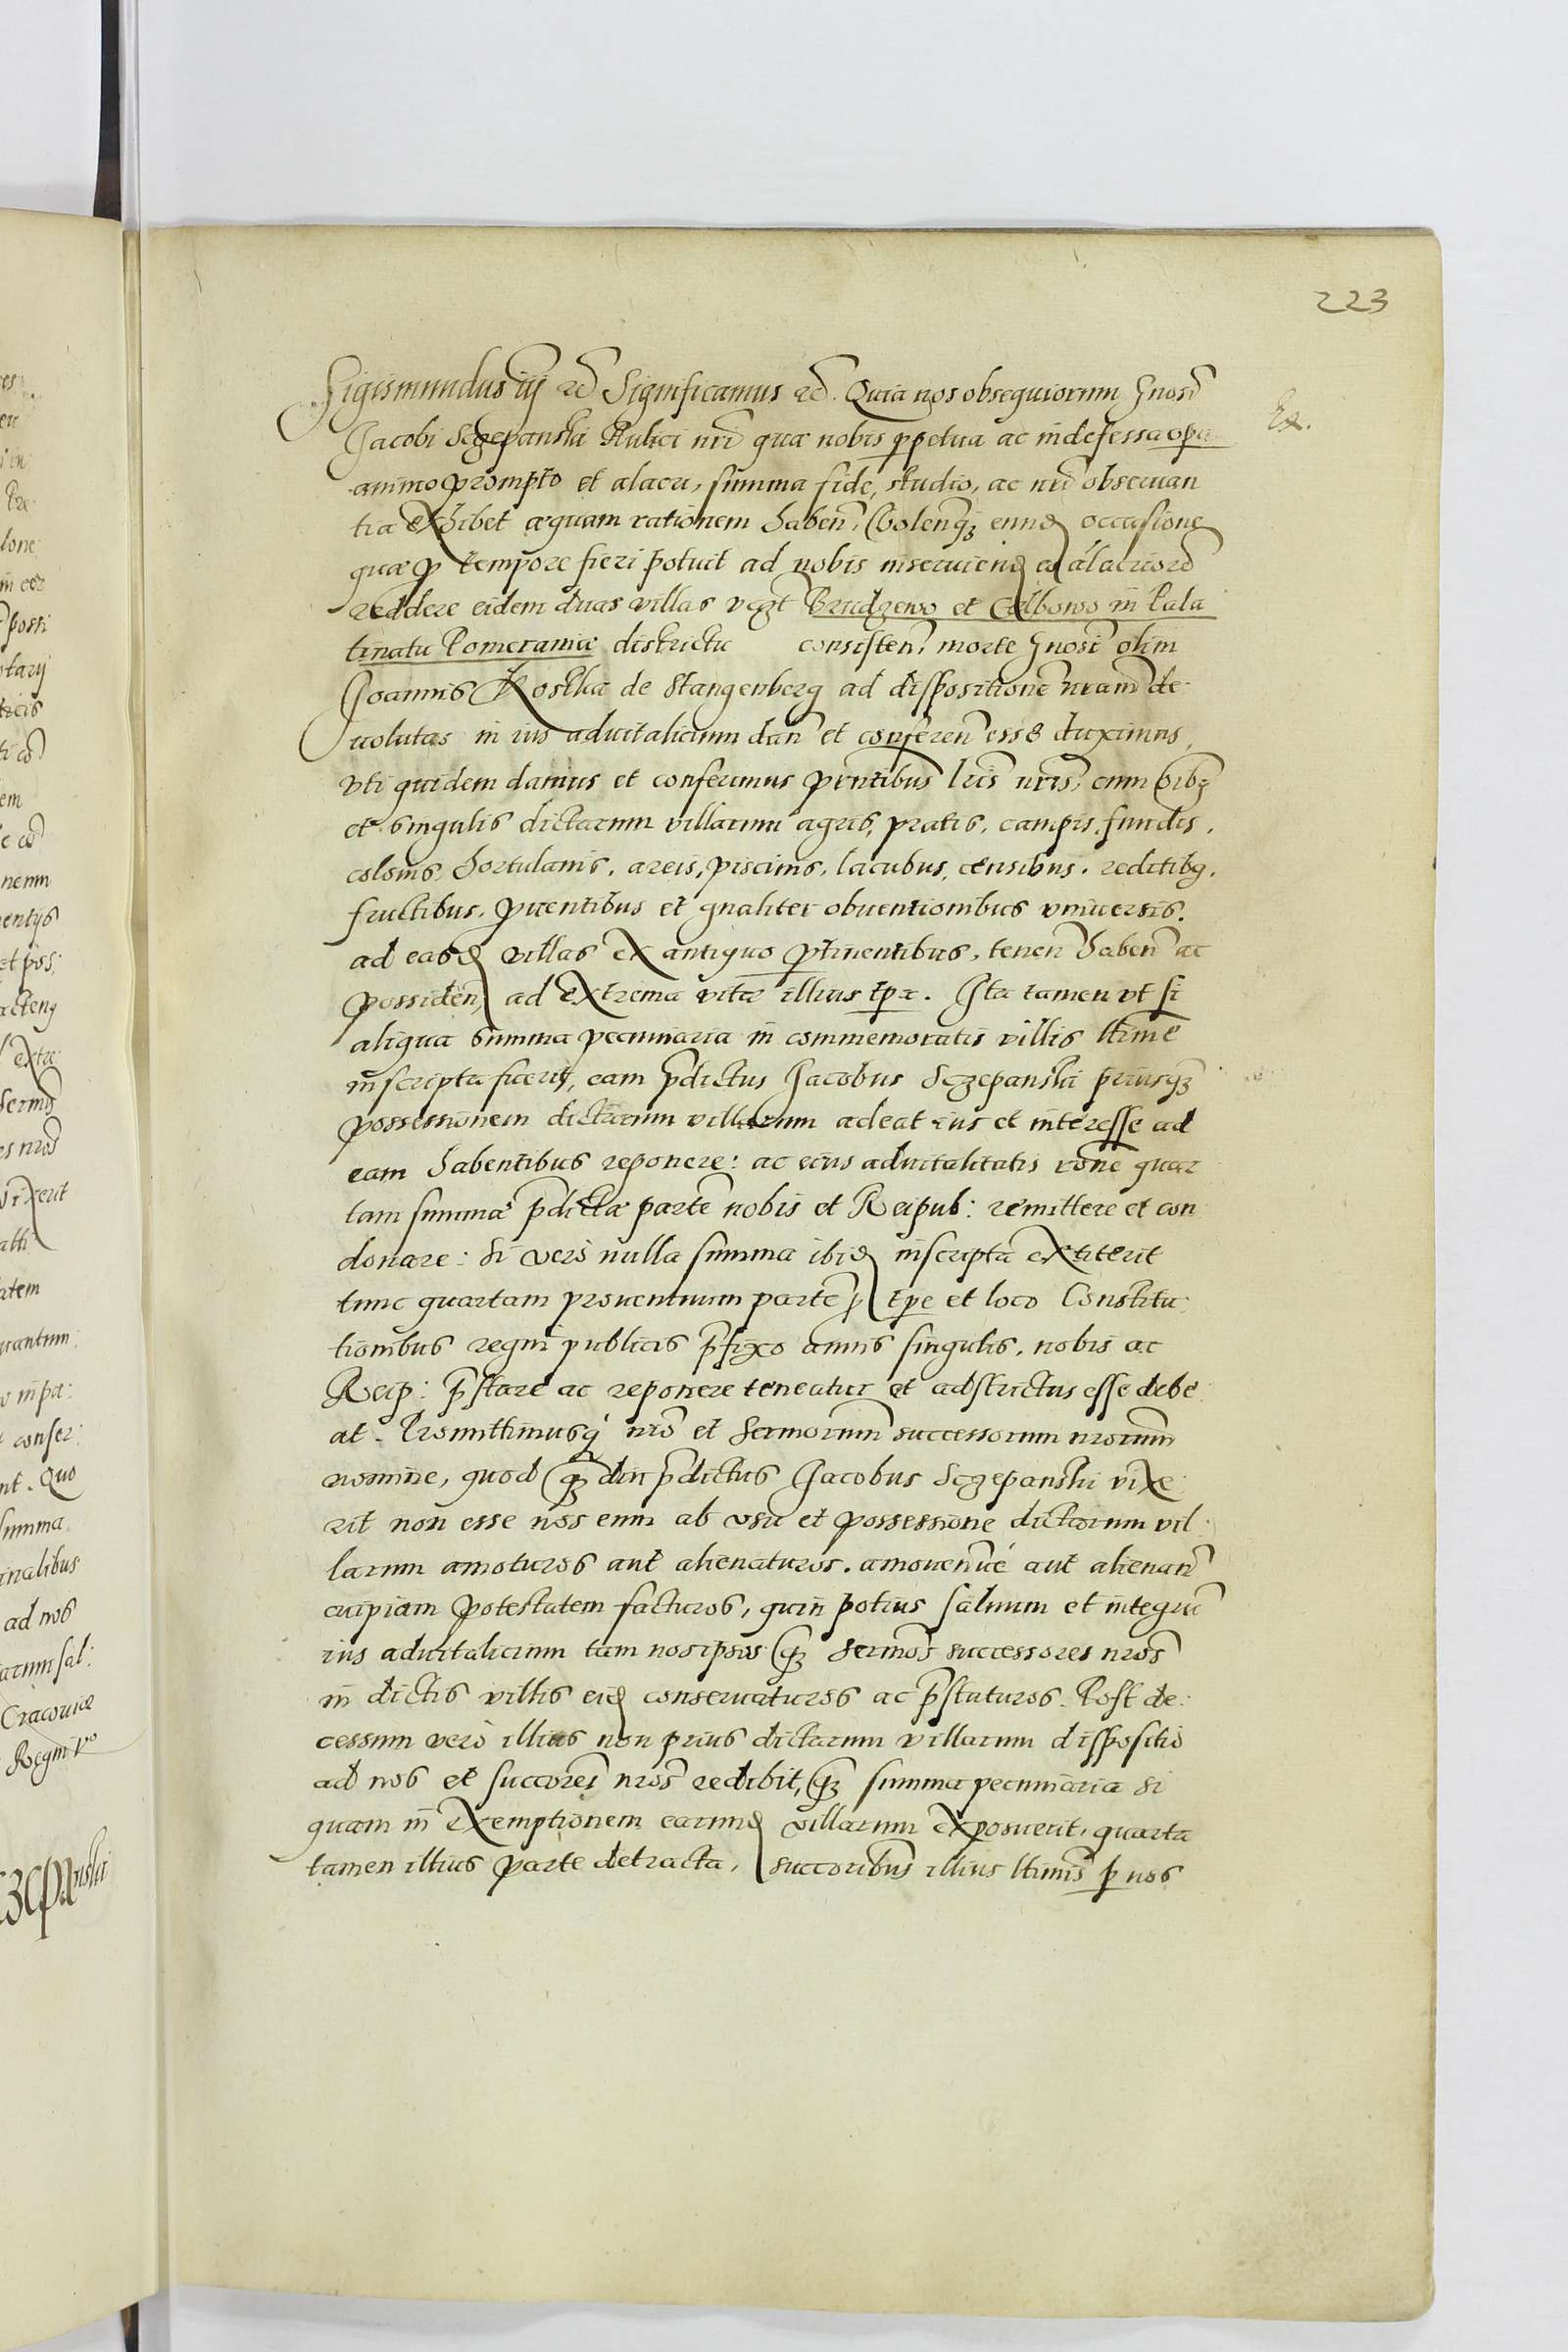 223
Sigismundus iij etc Significamus etc. Quia nos obsequiorum Gnosi
Ex.
Jacobi Sczepanski Aulici nri quæ nobis perpetua ac indefessa opera
animo prompto et alacri, summa fide, studio, ac nri obseruan
tia exhibet æquam rationem haben, Volenq3 eund occasione
quæ pro tempore fieri potuit ad nobis inseruiend eo alacriore
reddere eidem duas villas vczt Brudzewo et Celbowo in Pala
tinatu Pomeraniæ districtu consisten, morte Gnosi olim
Joannis Kostka de Stangenberg ad dispositione nram de
uolutas in ius aduitalicium dan et conferen esse duximus,
vti quidem damus et conferimus pntibus lris nris, cum oib3
et singulis dictarum villarum agris, pratis, campis, fundis,
colonis, hortulanis, areis, piscinis, lacubus, censibus, reditib9,
fructibus, prouentibus et gnaliter obuentionibus vniuersis.
ad easd villas ex antiquo ptinentibus, tenen haben ac
possiden, ad extrema vitæ illius tpa. Ita tamen vt si
aliqua summa pecuniaria in commemoratis villis ltime
inscripta fuerit, eam pdictus Jacobus Sczepanski priusq3
possessionem dictarum villarum adeat ius et interesse ad
eam habentibus reponere: ac eius aduitalitatis rone quar
tam summæ pdictæ parte nobis et Reipub: remittere et con
donare: Si vero nulla summa ibid inscripta extiterit
tunc quartam prouentuum parte, tpe et loco Constitu:
tionibus regni publicis pfixo annis singulis, nobis ac
Reip: pstare ac reponere teneatur et adstrictus esse debe:
at. Promittimusq3 nro et Sermorum successorum nrorum
nomine, quod q3 diu pdictus Jacobus Sczepanski vixe:
rit non esse nos eum ab vsu et possessione dictarum vil:
larum amoturos aut alienaturos, amouenue aut alienan
cuipiam potestatem facturos, quin potius saluum et integru
ius aduitalicium tam nosipsos q3 Sermos successores nros
in dictis villis eid conseruaturos ac pstaturos. Post de:
cessum vero illius non prius dictarum villarum dispositio
ad nos et succores nros redibit, q3 summa pecuniaria si
quam in exemptionem earund villarum exposuerit, quarta
tamen illius parte detracta, succoribus illius ltimis p nos